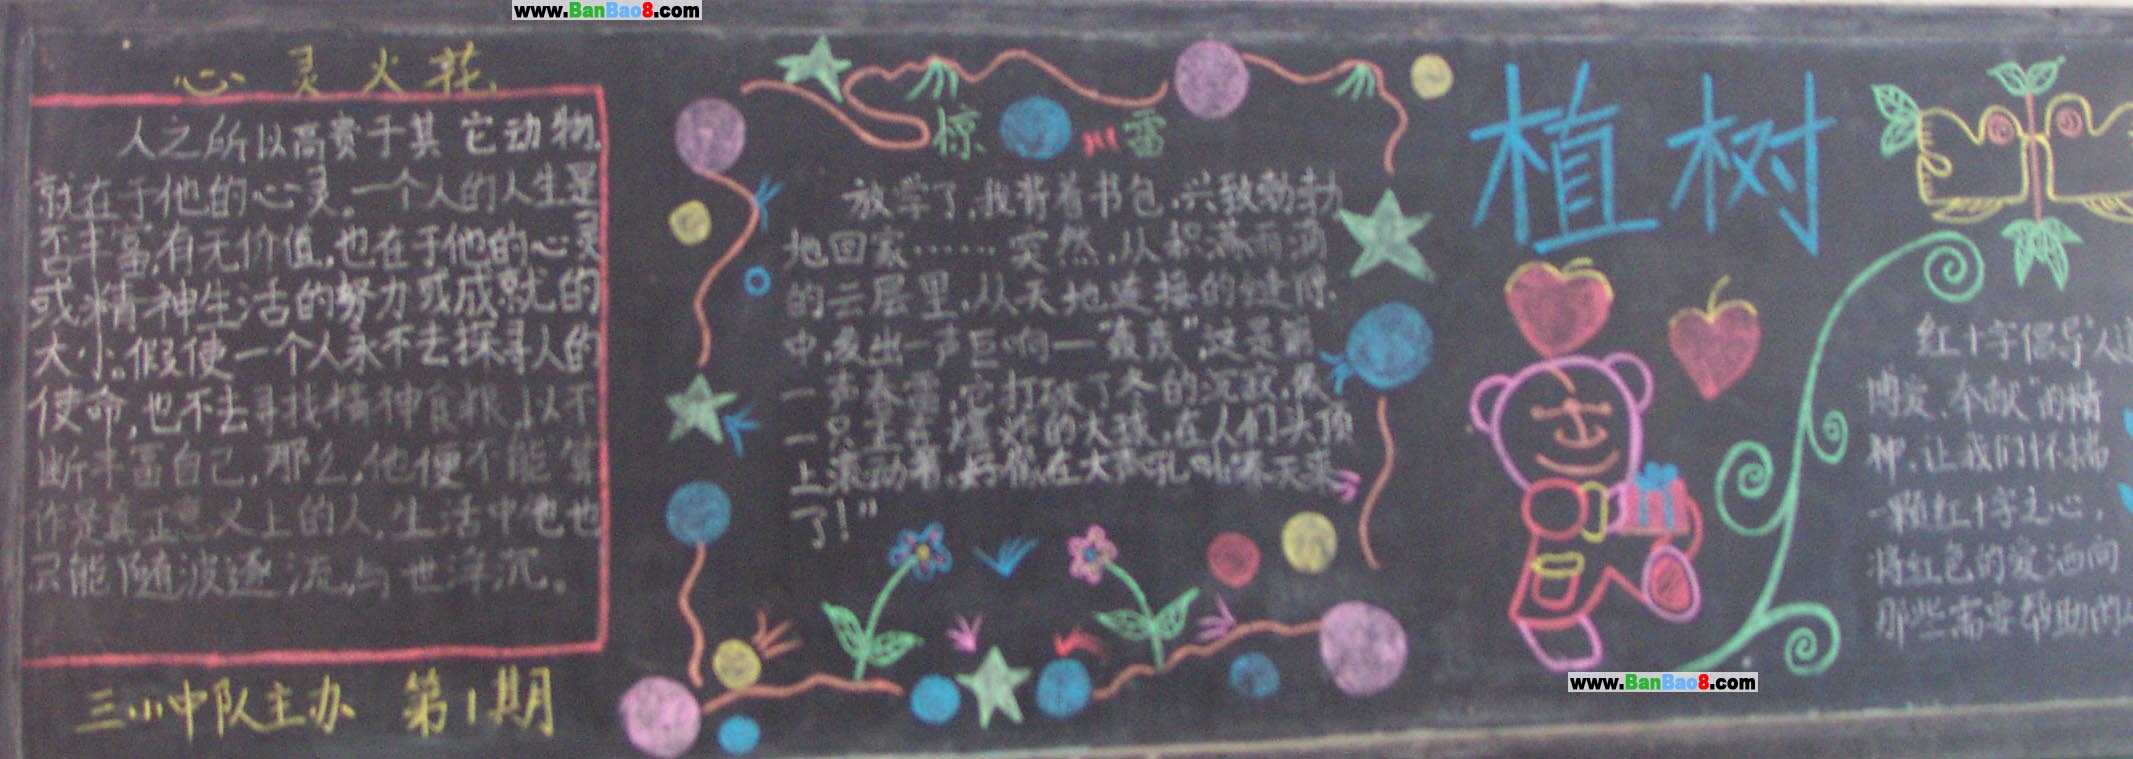 www.BanBao8.com
心灵火花
人之所以高贵于其它动物,
就在于他的心灵。一个人的人生是
否丰富,有无价值,也在于他的心灵
或精神生活的努力或成就的
大小。假使一个人永不去探寻人的
使命,也不去寻找精神食粮,以不
断丰富自己,那么,他便不能算
作是真正意义上的人,生活中他也
只能随波逐流,与世浮沉。
三小中队主办 第1期
惊雷
放学了,我背着书包,兴致勃勃
地回家……突然,从积满雨滴
的云层里,从天地连接的缝隙
中,发出一声巨响一"轰轰",这是第
一声春雷,它打破了冬的沉寂,像
一只正在爆炸的大球,在人们头顶
上滚动着,好像在大声吼叫"春天来
了!"
植树
红十字倡导"人道
博爱、奉献"的精
神,让我们怀揣
一颗红十字之心,
将红色的爱洒向
那些需要帮助的人
www.BanBao8.com